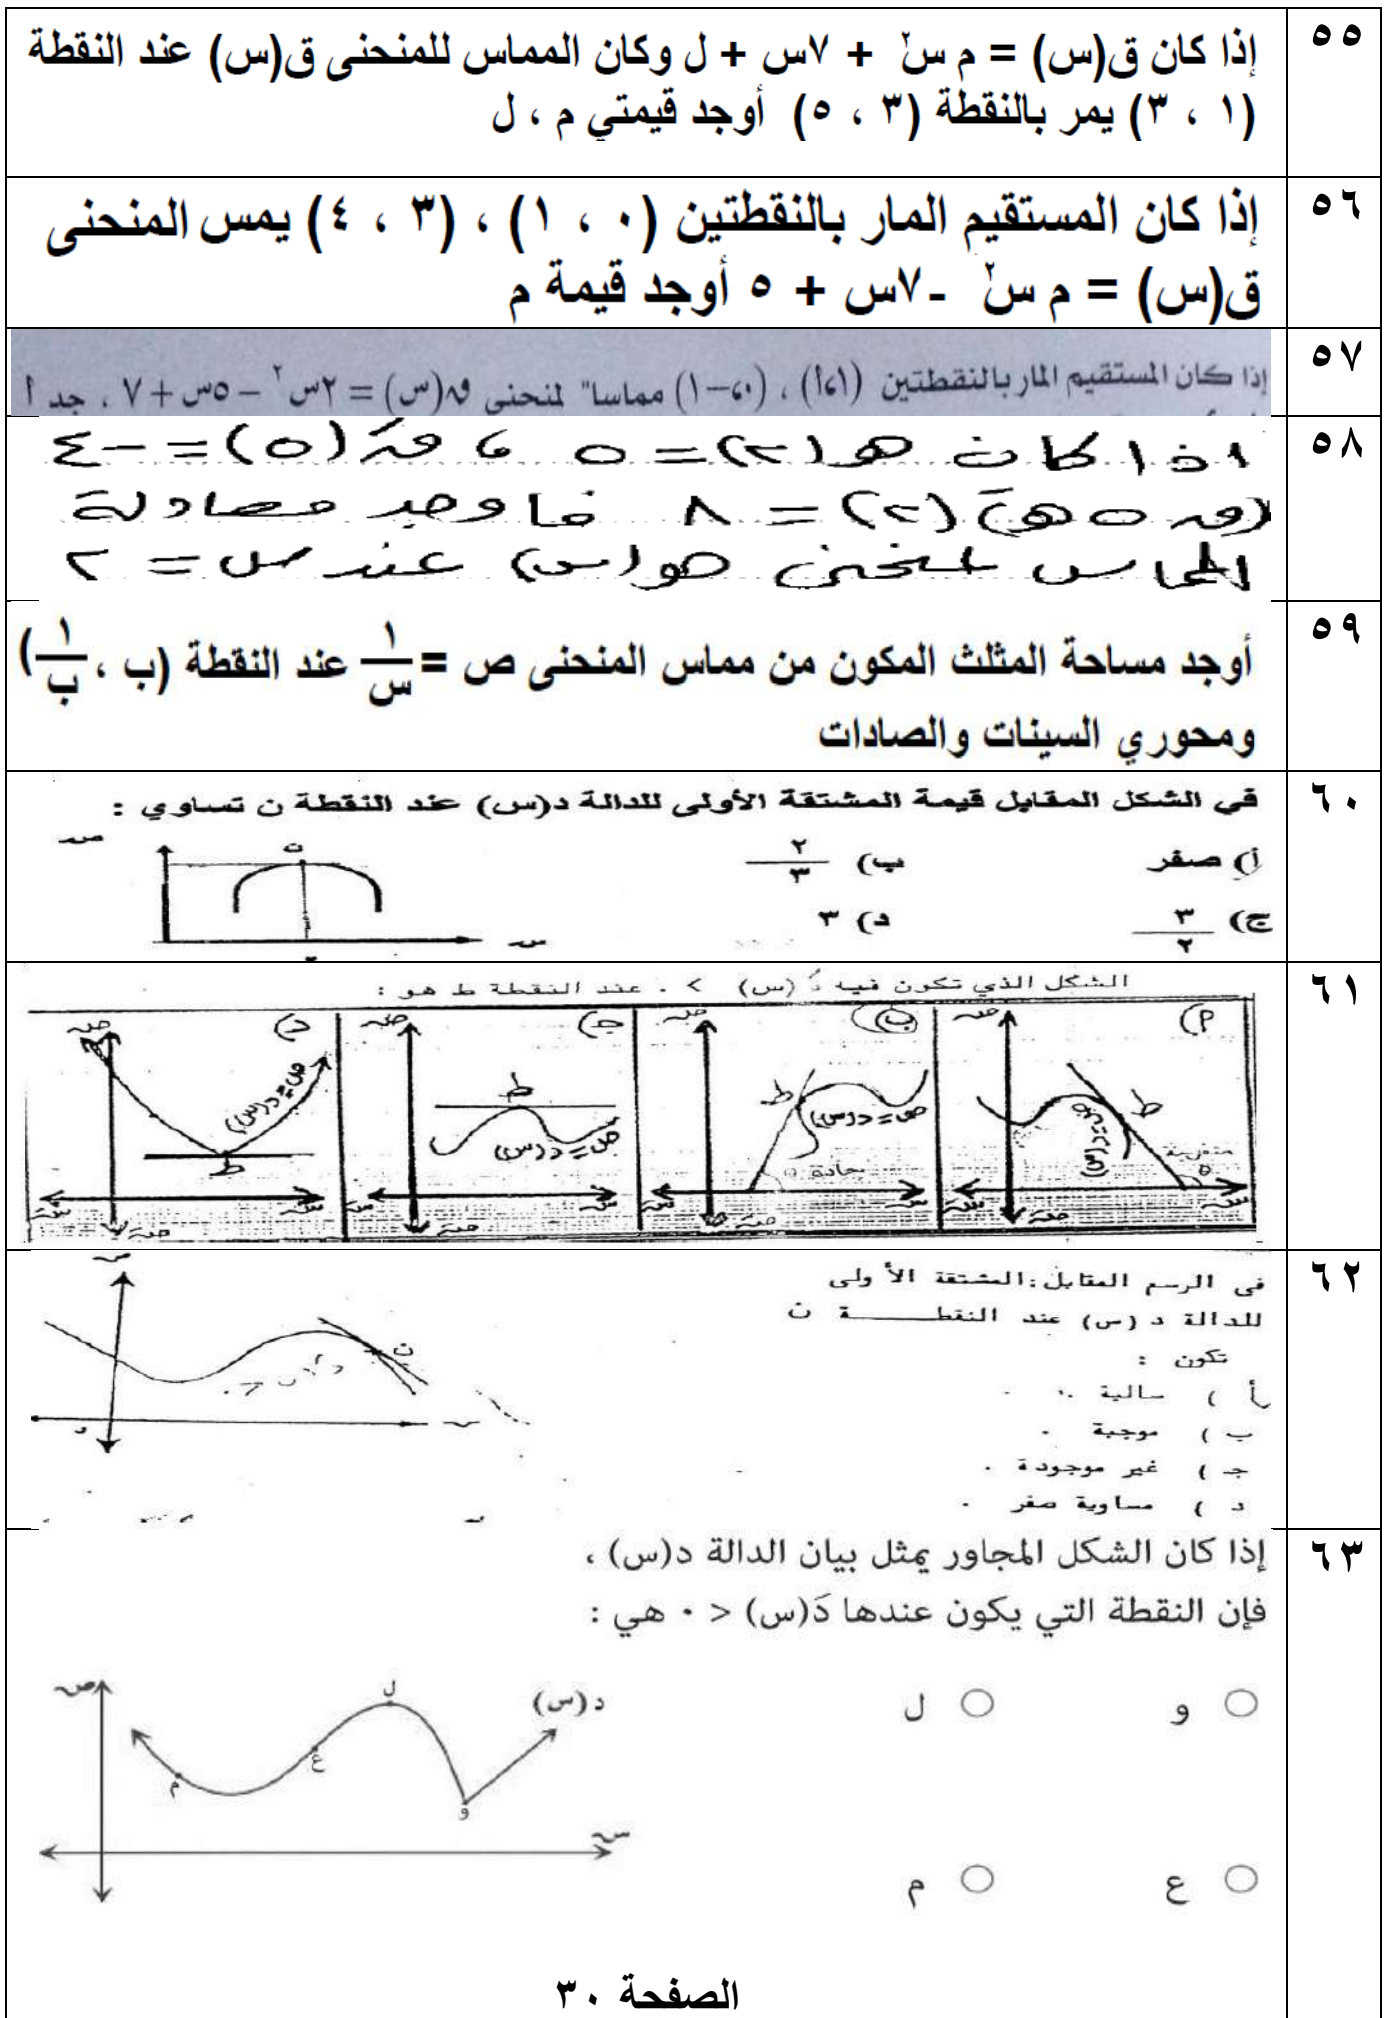 ٥٥
إذا كان ق(س) = م س٢ + ٧س + ل وكان المماس للمنحنى ق(س) عند النقطة
(١ ، ٣) يمر بالنقطة (٣ ، ٥) أوجد قيمتي م ، ل
٥٦
إذا كان المستقيم المار بالنقطتين (٠ ، ١) ، (٣ ، ٤) يمس المنحنى
ق(س) = م س٢ -٧س + ٥ أوجد قيمة م
٥٧
إذا كان المستقيم المار بالنقطتين (١،أ) ، (٠،-١) مماسا" لمنحنى ق(س) = ٢س٢ - ٥س + ٧ ، جد أ
٥٨
اذا كان هـ(٢) = ٥ ، قَ(٥) = -٤
(ق ٥ هـ)َ(٢) = ٨ فاوجد معادلة
المماس لمنحنى هـ(س) عند س = ٢
٥٩
أوجد مساحة المثلث المكون من مماس المنحنى ص = ١/س عند النقطة (ب ، ١/ب)
ومحوري السينات والصادات
٦٠
في الشكل المقابل قيمة المشتقة الأولى للدالة د(س) عند النقطة ن تساوي :
أ) صفر ب) ٢/٣
ج) ٣/٢ د) ٣
ص
ن
س
٦١
الشكل الذي تكون فيه دَ (س) > ٠ عند النقطة ط هو :
أ) ب) جـ) د)
ص ص ص ص
ط ط ط ط
ص=د(س) ص=د(س) ص=د(س) ص=د(س)
منفرجة هـ حادة هـ
س س س س س س س س
ص ص ص ص
٦٢
في الرسم المقابل : المشتقة الأولى
للدالة د (س) عند النقطـــــة ن
تكون :
أ ) سالبة .
ب ) موجبة .
جـ ) غير موجودة .
د ) مساوية صفر .
ن
٦٣
إذا كان الشكل المجاور يمثل بيان الدالة د(س) ،
فإن النقطة التي يكون عندها دَ(س) < ٠ هي :
و ل
ع م
ص
ل
د(س)
ع
م
و
س
الصفحة ٣٠